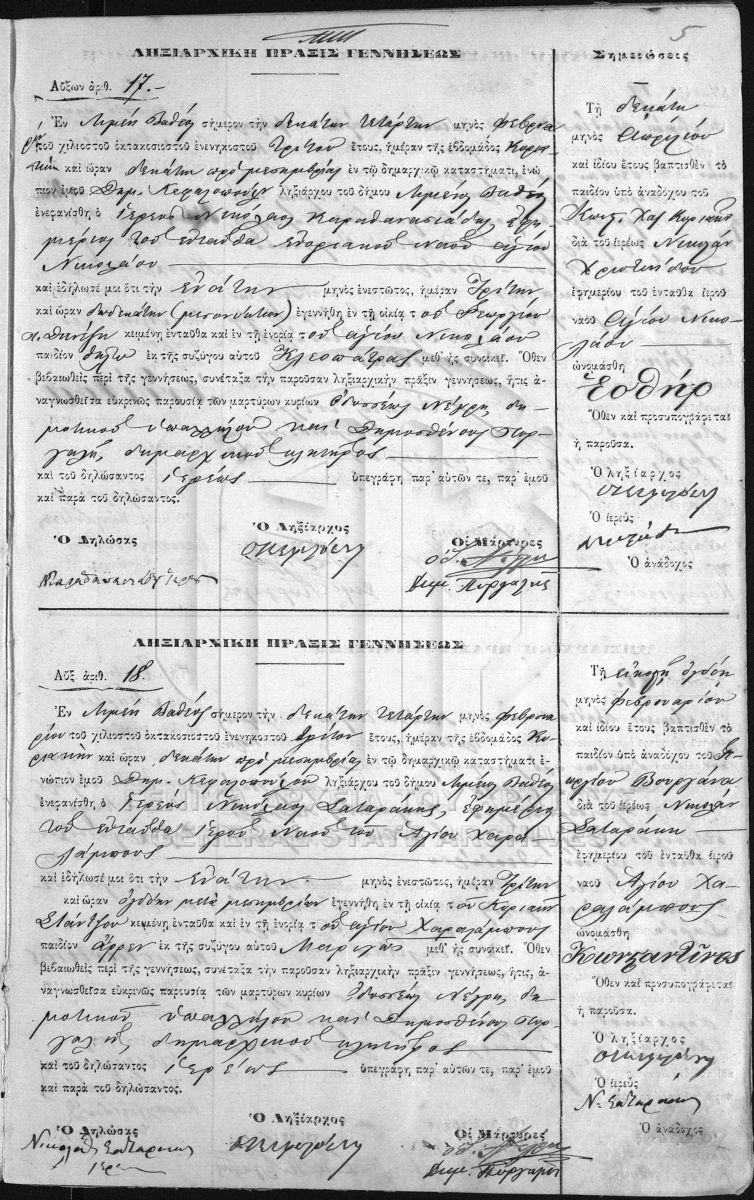 5
ΛΗΞΙΑΡΧΙΚΗ ΠΡΑΞΙΣ ΓΕΝΝΗΣΕΩΣ
Αὔξων ἀριθ. 17.-
Ἐν Λιμένι Βαθέος σήμερον τὴν δεκάτην τετάρτην μηνὸς Φεβρουα
ρίου τοῦ χιλιοστοῦ ὀκτακοσιοστοῦ ἐνενηκοστοῦ τρίτου ἔτους, ἡμέραν τῆς ἑβδομάδος Κυρια
κὴν καὶ ὥραν δεκάτην πρὸ μεσημβρίας ἐν τῷ δημαρχικῷ καταστήματι, ἐνώ
πιον ἐμοῦ Δημ. Κεφαλοπούλου ληξιάρχου τοῦ δήμου Λιμένος Βαθέος
ἐνεφανίσθη ὁ ἱερεὺς Νικόλαος Καραθανασιάδης ἐφη
μέριος τοῦ ἐνταῦθα ναοῦ ἁγίου
Νικολάου
καὶ ἐδήλωσέ μοι ὅτι τὴν ἐνάτην μηνὸς ἐνεστῶτος, ἡμέραν Τρίτην
καὶ ὥραν δωδεκάτην (μεσονύκτιον) ἐγεννήθη ἐν τῇ οἰκίᾳ τοῦ Γεωργίου
κειμένῃ ἐνταῦθα καὶ ἐν τῇ ἐνορίᾳ τοῦ ἁγίου Νικολάου
παιδίον θῆλυ ἐκ τῆς συζύγου αὐτοῦ Κλεοπάτρας μεθ' ἧς συνοικεῖ. Ὅθεν
βεβαιωθεὶς περὶ τῆς γεννήσεως, συνέταξα τὴν παροῦσαν ληξιαρχικὴν πρᾶξιν γεννήσεως, ἥτις ἀ-
ναγνωσθεῖσα εὐκρινῶς παρουσίᾳ τῶν μαρτύρων κυρίων Ὀδυσσέως Νέγρη, δη-
μοτικοῦ ὑπαλλήλου καὶ Δημοσθένους Πυρ-
γαλῆ, δημαρχικοῦ κλητῆρος
καὶ τοῦ δηλώσαντος ἱερέως ὑπεγράφη παρ' αὐτῶν τε, παρ' ἐμοῦ
καὶ παρὰ τοῦ δηλώσαντος.
Ὁ Δηλώσας
Ὁ Ληξίαρχος
Οἱ Μάρτυρες
Δημ. Πυργαλής
Σημειώσεις
Τῇ δεκάτῃ
μηνὸς Ἀπριλίου
καὶ ἰδίου ἔτους βαπτισθὲν τὸ
παιδίον ὑπὸ ἀναδόχου τοῦ
Κωνσ. Χαζ Κυριακοῦ
διὰ τοῦ ἱερέως Νικολάου
ἐφημερίου τοῦ ἐνταῦθα ἱεροῦ
ναοῦ Ἁγίου Νικο-
λάου
ὠνομάσθη
Ἐσθήρ
Ὅθεν καὶ προσυπογράφεται
ἡ παροῦσα.
Ὁ ληξίαρχος
Ὁ ἱερεὺς
Ὁ ἀνάδοχος
ΛΗΞΙΑΡΧΙΚΗ ΠΡΑΞΙΣ ΓΕΝΝΗΣΕΩΣ
Αὔξ ἀριθ. 18.
Ἐν Λιμένι Βαθέος σήμερον τὴν δεκάτην τετάρτην μηνὸς Φεβρουα
ρίου τοῦ χιλιοστοῦ ὀκτακοσιοστοῦ ἐνενηκοστοῦ τρίτου ἔτους, ἡμέραν τῆς ἑβδομάδος Κυ
ριακὴν καὶ ὥραν δεκάτην πρὸ μεσημβρίας ἐν τῷ δημαρχικῷ καταστήματι
ἐνώπιον ἐμοῦ Δημ. Κεφαλοπούλου ληξιάρχου τοῦ δήμου Λιμένος Βαθέος
ἐνεφανίσθη ὁ ἱερεὺς Νικόλαος Σαταράκης, ἐφημέριος
τοῦ ἐνταῦθα ἱεροῦ Ναοῦ τοῦ Ἁγίου Χαρα
λάμπους
καὶ ἐδήλωσέ μοι ὅτι τὴν ἐνάτην μηνὸς ἐνεστῶτος, ἡμέραν Τρίτην
καὶ ὥραν ὀγδόην μετὰ μεσημβρίαν ἐγεννήθη ἐν τῇ οἰκίᾳ τοῦ Κυριακοῦ
Στάντζου κειμένῃ ἐνταῦθα καὶ ἐν τῇ ἐνορίᾳ τοῦ ἁγίου Χαραλάμπους
παιδίον ἄρρεν ἐκ τῆς συζύγου αὐτοῦ Μαριγῶς μεθ' ἧς συνοικεῖ. Ὅθεν
βεβαιωθεὶς περὶ τῆς γεννήσεως, συνέταξα τὴν παροῦσαν ληξιαρχικὴν πρᾶξιν γεννήσεως, ἥτις, ἀ-
ναγνωσθεῖσα εὐκρινῶς παρουσίᾳ τῶν μαρτύρων κυρίων Ὀδυσσέως Νέγρη, δη
μοτικοῦ ὑπαλλήλου καὶ Δημοσθένους Πυρ
γαλῆ δημαρχικοῦ κλητῆρος
καὶ τοῦ δηλώσαντος ἱερέως ὑπεγράφη παρ' αὐτῶν τε, παρ' ἐμοῦ
καὶ παρὰ τοῦ δηλώσαντος.
Ὁ Δηλώσας
Νικόλαος Σαταράκης
Ὁ Ληξίαρχος
Οἱ Μάρτυρες
Δημ. Πυργαλής
Τῇ εἰκοστῇ ὀγδόῃ
μηνὸς Φεβρουαρίου
καὶ ἰδίου ἔτους βαπτισθὲν τὸ
παιδίον ὑπὸ ἀναδόχου τοῦ Γε
ωργίου Βουργάνα
διὰ τοῦ ἱερέως Νικολάου
Σαταράκη
ἐφημερίου τοῦ ἐνταῦθα ἱεροῦ
ναοῦ Ἁγίου Χα-
ραλάμπους
ὠνομάσθη
Κωνσταντῖνος
Ὅθεν καὶ προσυπογράφεται
ἡ παροῦσα.
Ὁ ληξίαρχος
Ὁ ἱερεὺς
Ν. Σαταράκης
Ὁ ἀνάδοχος